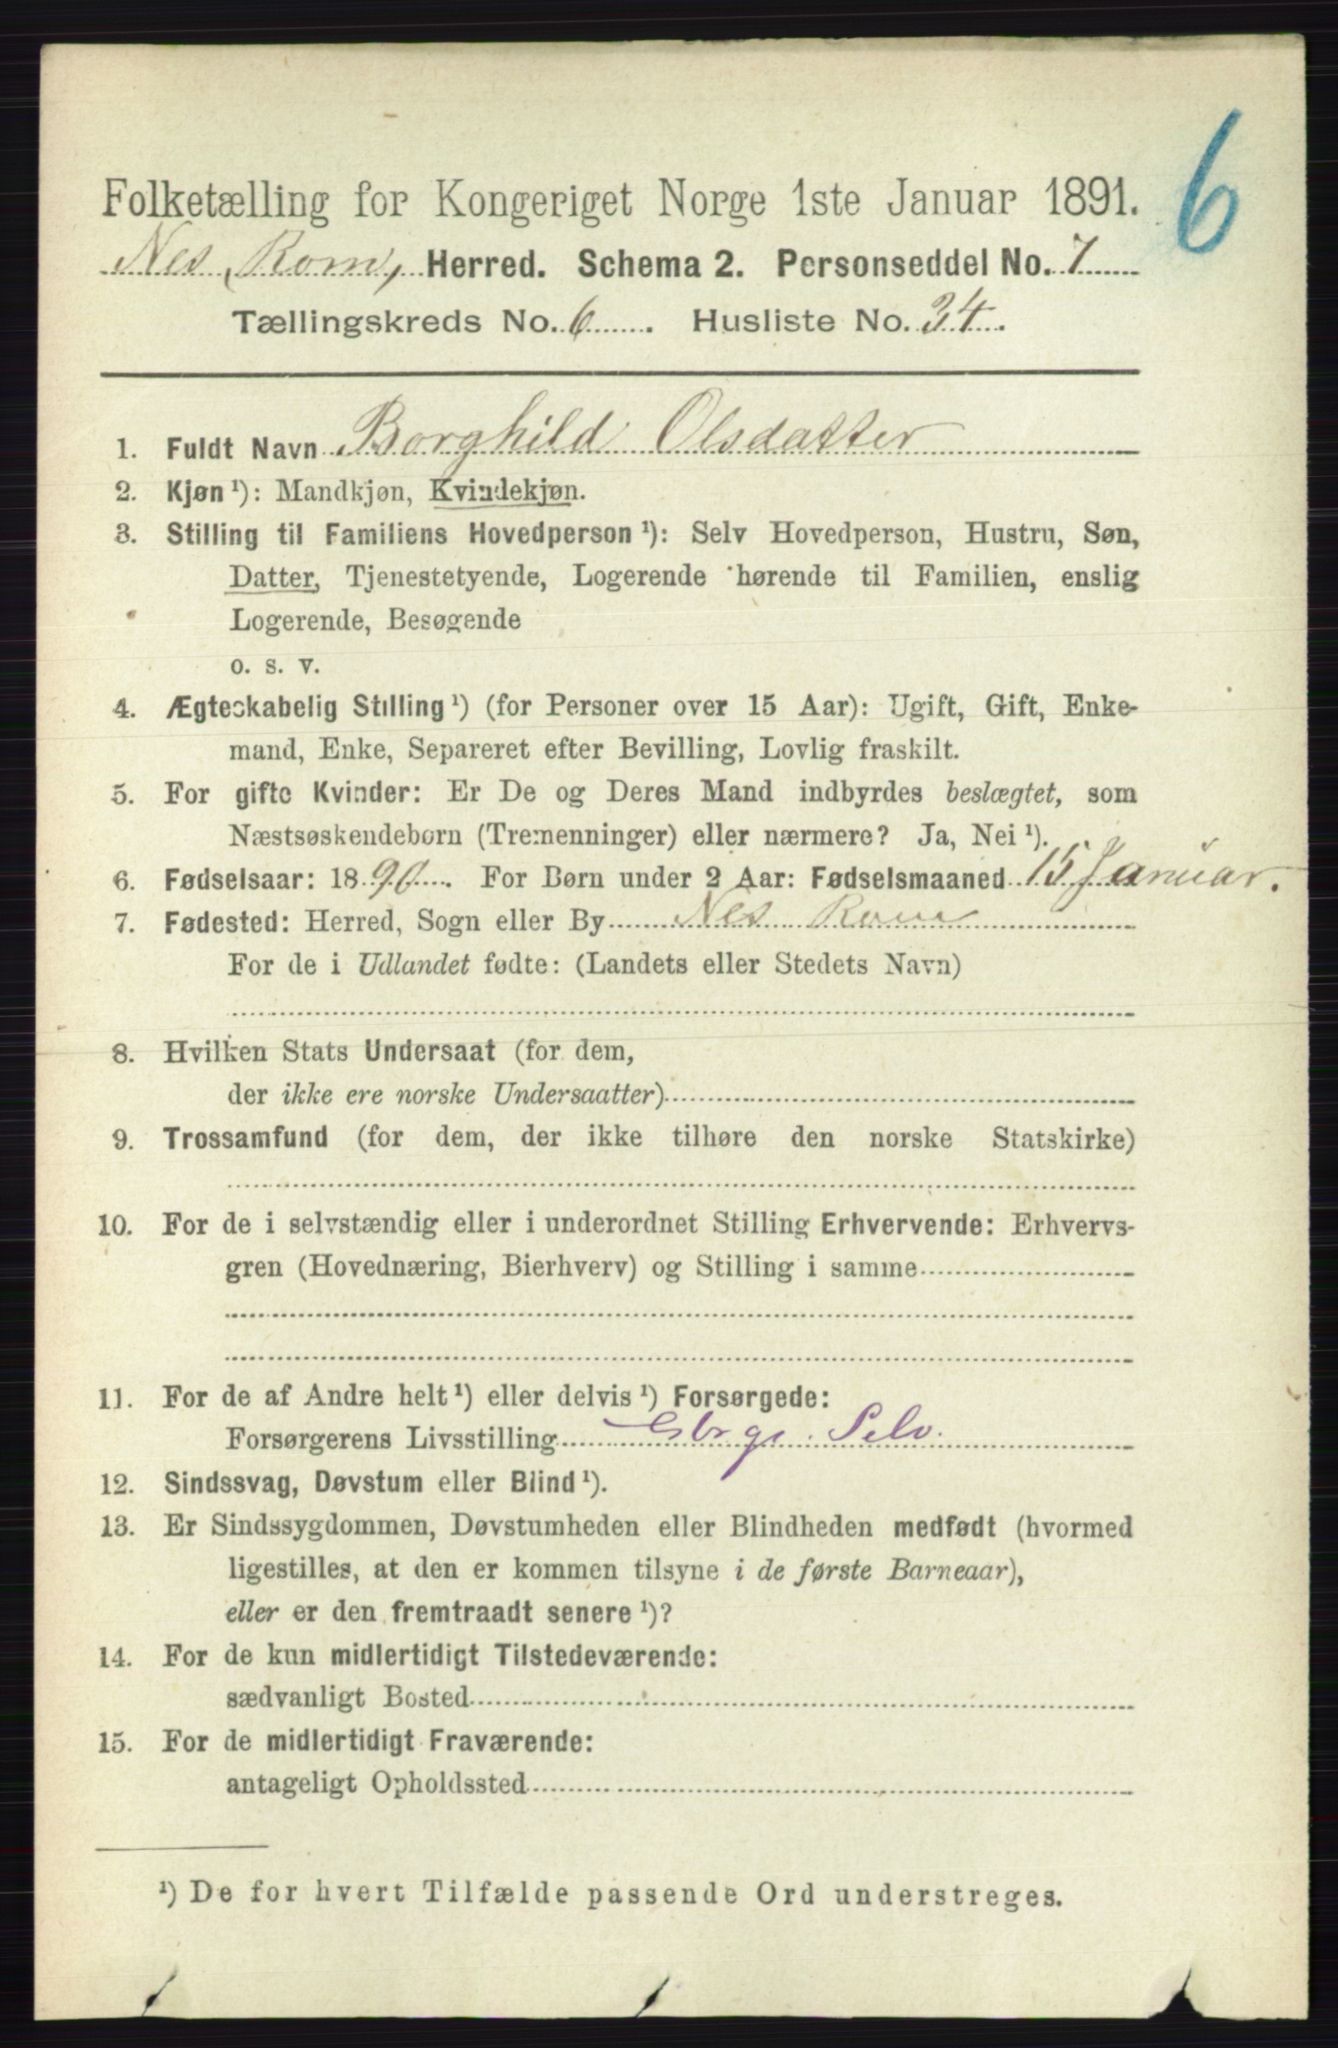 6
Folketælling for Kongeriget Norge 1ste Januar 1891.
Nes, Rom, Herred. Schema 2. Personseddel No. 7
Tællingskreds No. 6. Husliste No. 34.
1. Fuldt Navn Borghild Olsdatter
2. Kjøn ¹): Mandkjøn, Kvindekjøn.
3. Stilling til Familiens Hovedperson ¹): Selv Hovedperson, Hustru, Søn,
Datter, Tjenestetyende, Logerende hørende til Familien, enslig
Logerende, Besøgende
o. s. v.
4. Ægteskabelig Stilling ¹) (for Personer over 15 Aar): Ugift, Gift, Enke-
mand, Enke, Separeret efter Bevilling, Lovlig fraskilt.
5. For gifte Kvinder: Er De og Deres Mand indbyrdes beslægtet, som
Næstsøskendebørn (Tremenninger) eller nærmere? Ja, Nei ¹).
6. Fødselsaar: 1890. For Børn under 2 Aar: Fødselsmaaned 15 Januar.
7. Fødested: Herred, Sogn eller By Nes Rom
For de i Udlandet fødte: (Landets eller Stedets Navn)
8. Hvilken Stats Undersaat (for dem,
der ikke ere norske Undersaatter)
9. Trossamfund (for dem, der ikke tilhøre den norske Statskirke)
10. For de i selvstændig eller i underordnet Stilling Erhvervende: Erhvervs-
gren (Hovednæring, Bierhverv) og Stilling i samme
11. For de af Andre helt ¹) eller delvis ¹) Forsørgede:
Forsørgerens Livsstilling Selv.
12. Sindssvag, Døvstum eller Blind ¹).
13. Er Sindssygdommen, Døvstumheden eller Blindheden medfødt (hvormed
ligestilles, at den er kommen tilsyne i de første Barneaar),
eller er den fremtraadt senere ¹)?
14. For de kun midlertidigt Tilstedeværende:
sædvanligt Bosted
15. For de midlertidigt Fraværende:
antageligt Opholdssted
¹) De for hvert Tilfælde passende Ord understreges.